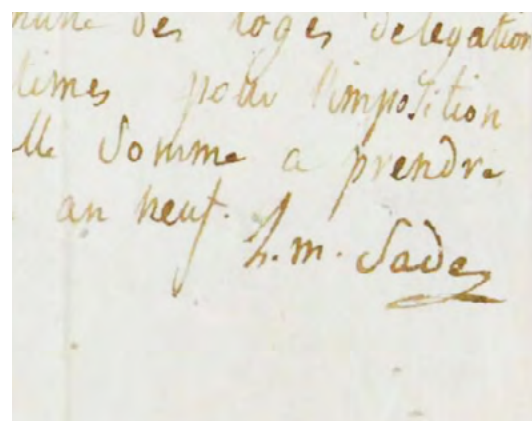 des loges delegation
times pour l'imposition
lle somme a prendre
an neuf.
L. m. Sade